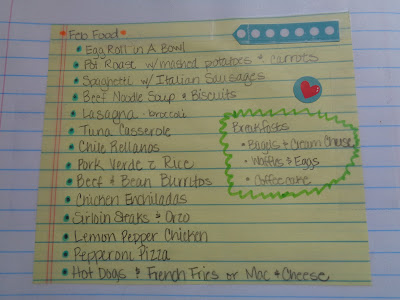 Feb Food
Egg Roll in A Bowl
Pot Roast w/mashed potatoes & carrots
Spaghetti w/ Italian Sausages
Beef Noodle Soup & Biscuits
Lasagna - broccoli
Tuna Casserole
Chile Rellanos
Pork Verde & Rice
Beef & Bean Burritos
Chicken Enchiladas
Sirloin Steaks & Orzo
Lemon Pepper Chicken
Pepperoni Pizza
Hot Dogs & French Fries or Mac & Cheese
Breakfasts
Bagels & Cream Cheese
Waffles & Eggs
Coffeecake